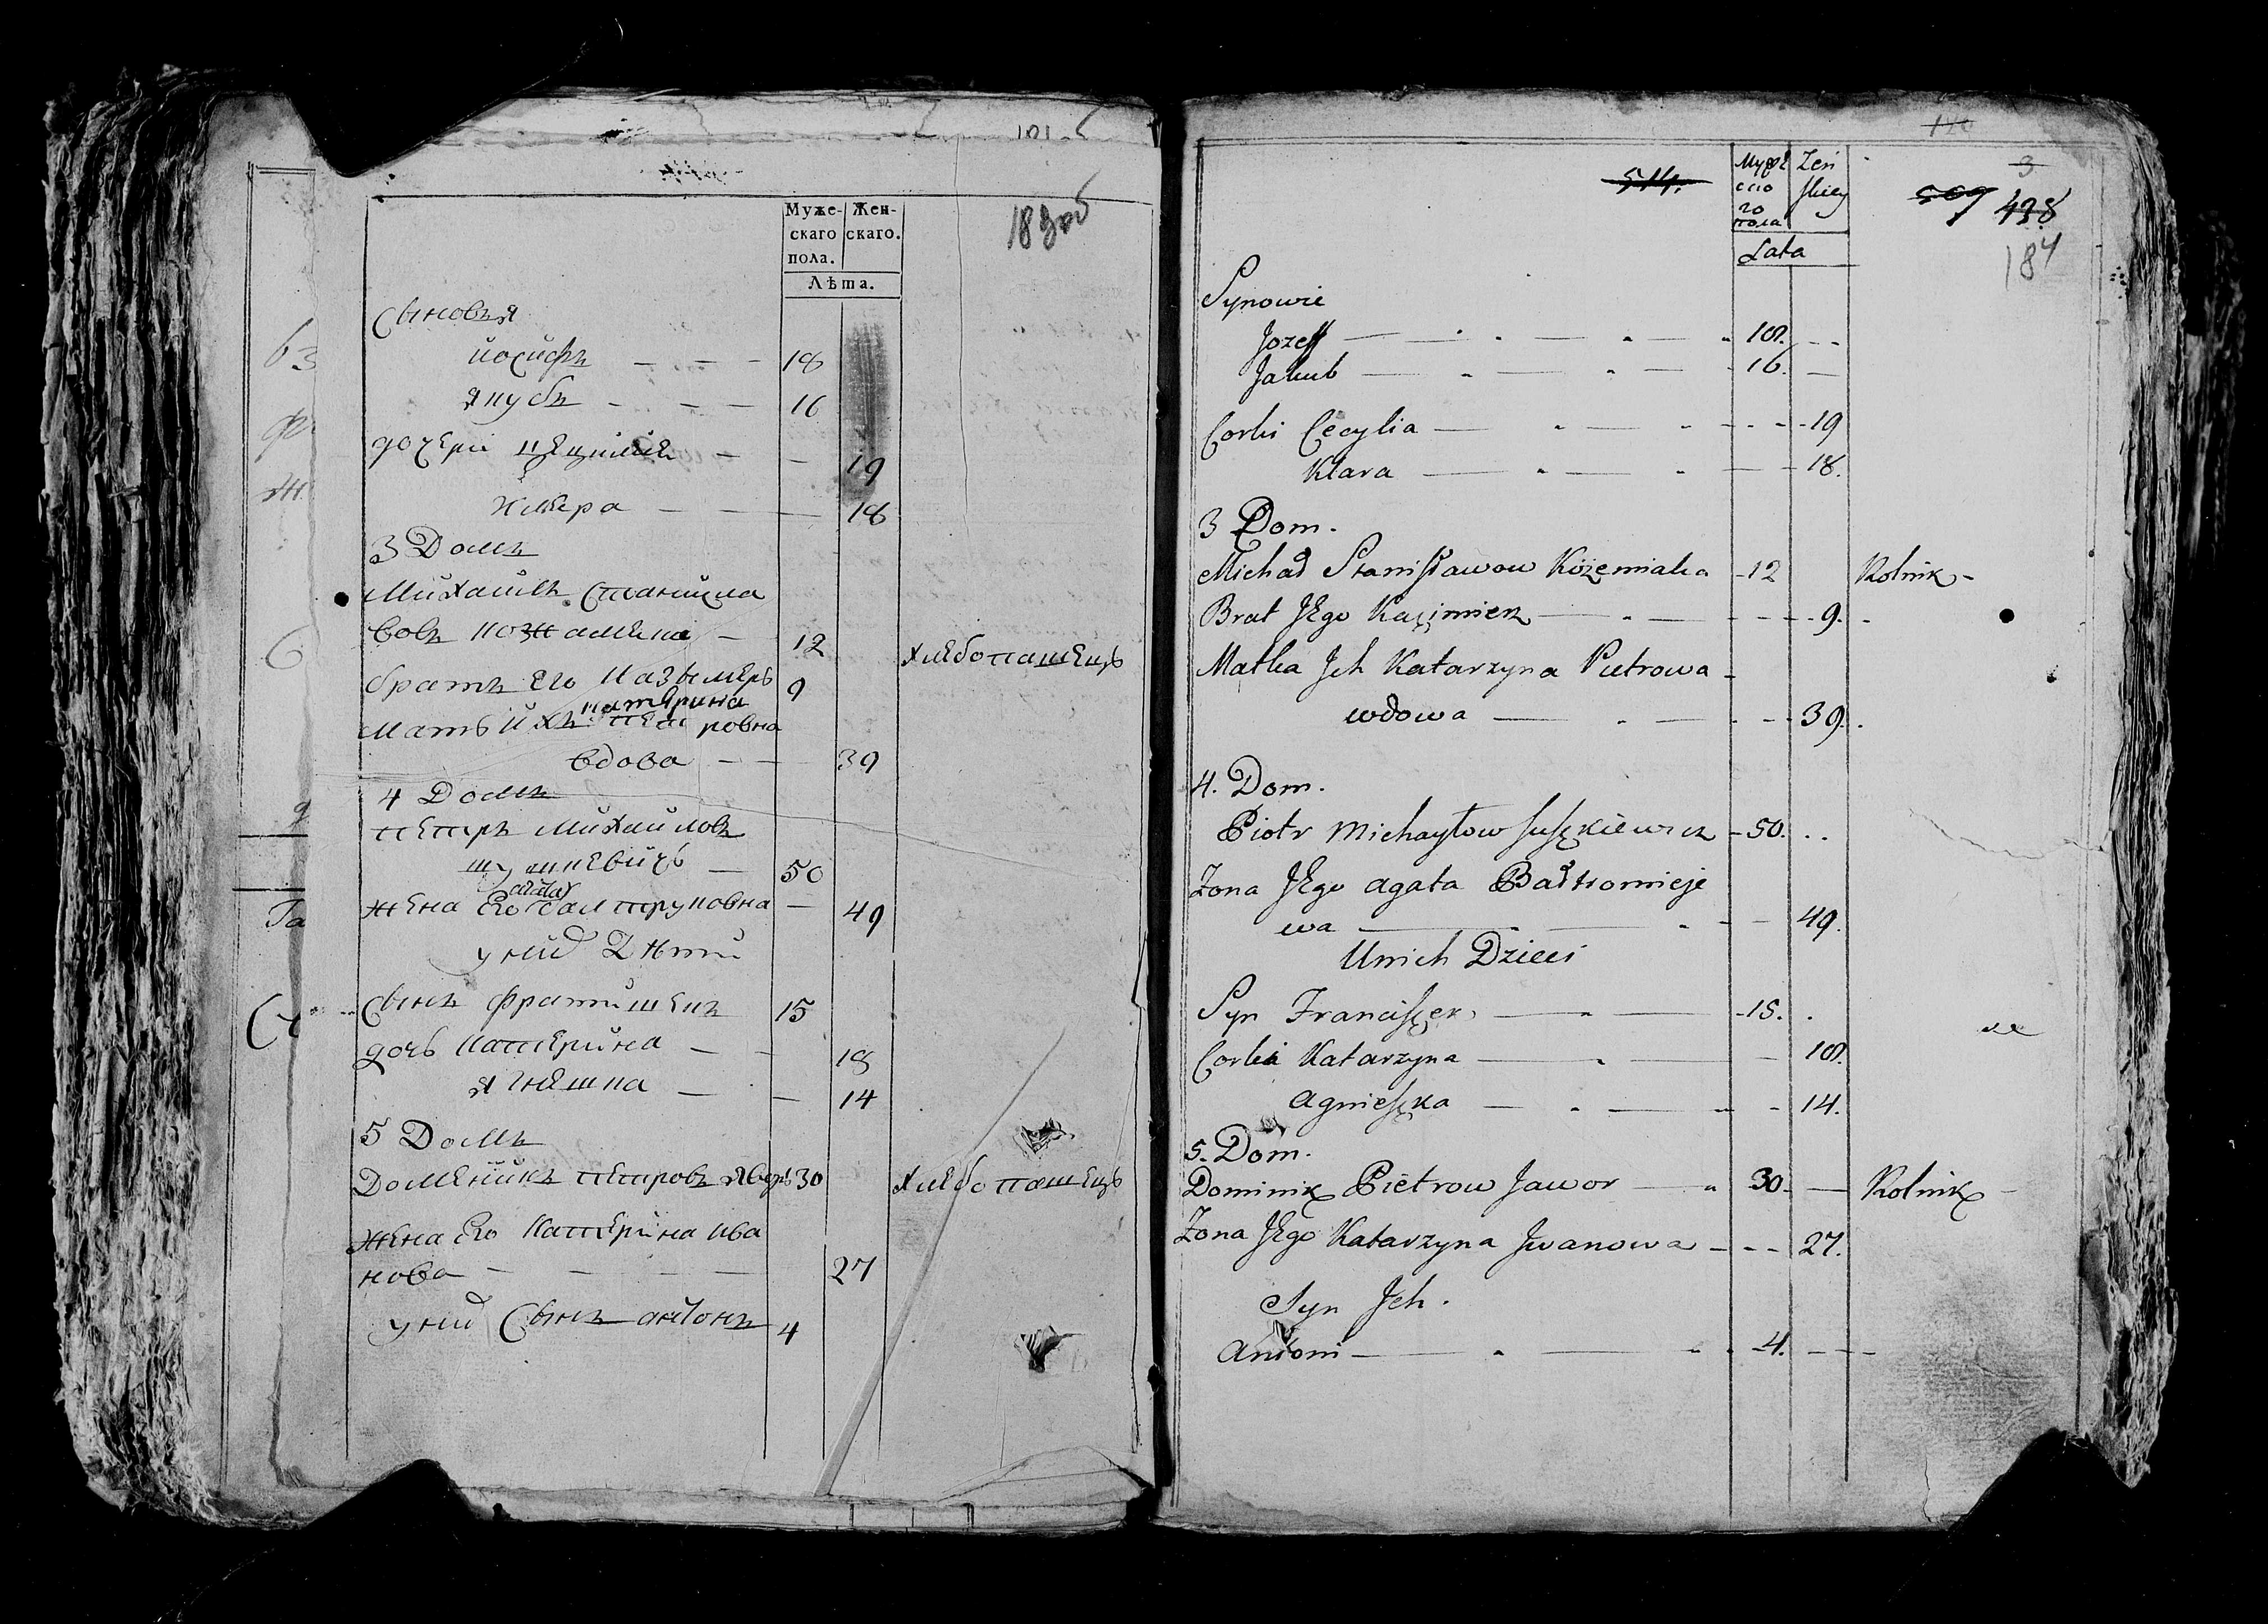 101
Муже-
скаго
пола.
Жен-
скаго.
Лѣта.
183об
Сыновья
йосифъ — — — 18
якубъ - — — 16
дочери цецилия — — 19
клара — — — 18
3 Домъ
Михаилъ Станисла
вовъ кожамяка — 12 хлебопашецъ
братъ его казымеръ 9
катярина
мать ихъ петровна
вдова — — 39
4 Домъ
петръ михайловъ
шушкевичъ — 50
агата
жена его балтруковна — 49
у них дѣти
сынъ франтишекъ 15
дочь катерина — — 18
ягнешка — — 14
5 Домъ
Доменикъ петровъ яворъ 30 хлебопашецъ
жена его катерина ива
нова — — — — 27
у них сынъ антонъ 4
120
514.
Мужс
ско
го
пола
Żeń
skiey
Lata
3
509 438
184
Synowie
Jozeff — 18.
Jakub — 16.
Corki Cecylia — 19
Klara — 18.
3 Dom.
Michał Stanisławow Kożemiaka - 12 Rolnik -
Brat Jego Kazimierz — 9.
Matka Jch Katarzyna Pietrowa -
wdowa — 39.
4. Dom.
Piotr Michayłow suszkiewicz - 50.
Żona Jego agata Bałtromieje
wa — 49.
Unich Dzieci
Syn Franciszek — 15.
Corka Katarzyna — 18.
Agnieszka — 14.
5. Dom.
Dominik Pietrow Jawor — 30. — Rolnik -
Żona Jego Katarzyna Jwanowa - - - 27.
Syn Jch.
Antoni — 4.